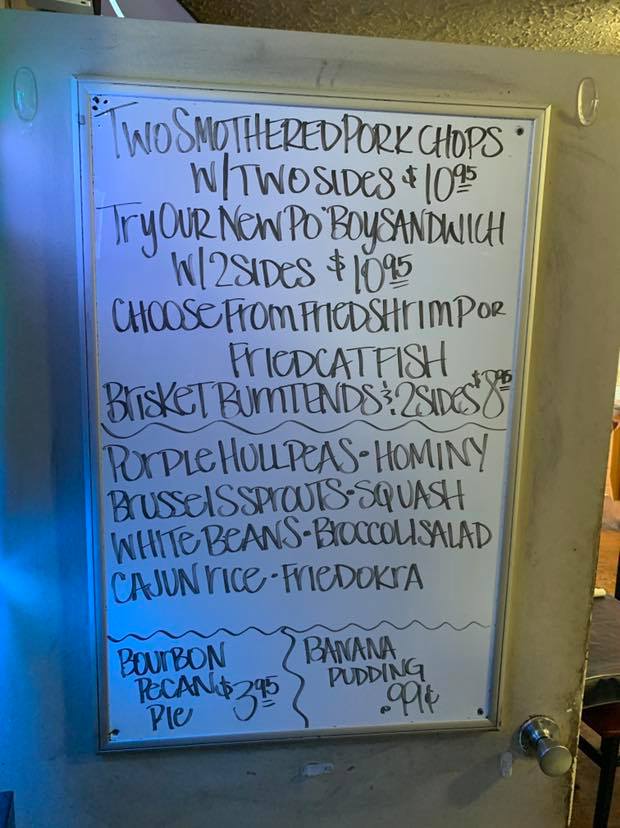 Two Smothered Pork Chops
w/ Two Sides $10.95
Try Our New Po'Boy Sandwich
w/ 2 Sides $10.95
Choose From Fried Shrimp or
Fried Catfish
Brisket Burnt Ends & 2 Sides $8.95
Purple Hull Peas - Hominy
Brussels Sprouts - Squash
White Beans - Broccoli Salad
Cajun Rice - Fried Okra
Bourbon
Pecan $3.95
Pie
Banana
Pudding
.99¢